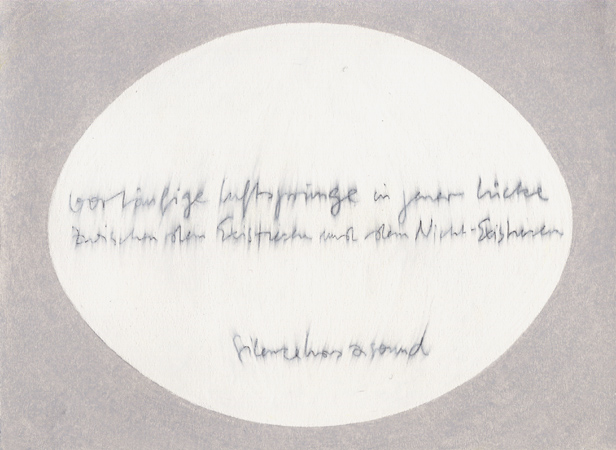 vorläufige luftsprünge in jener lücke
zwischen dem Existieren und dem Nicht-Existieren
silence has a sound